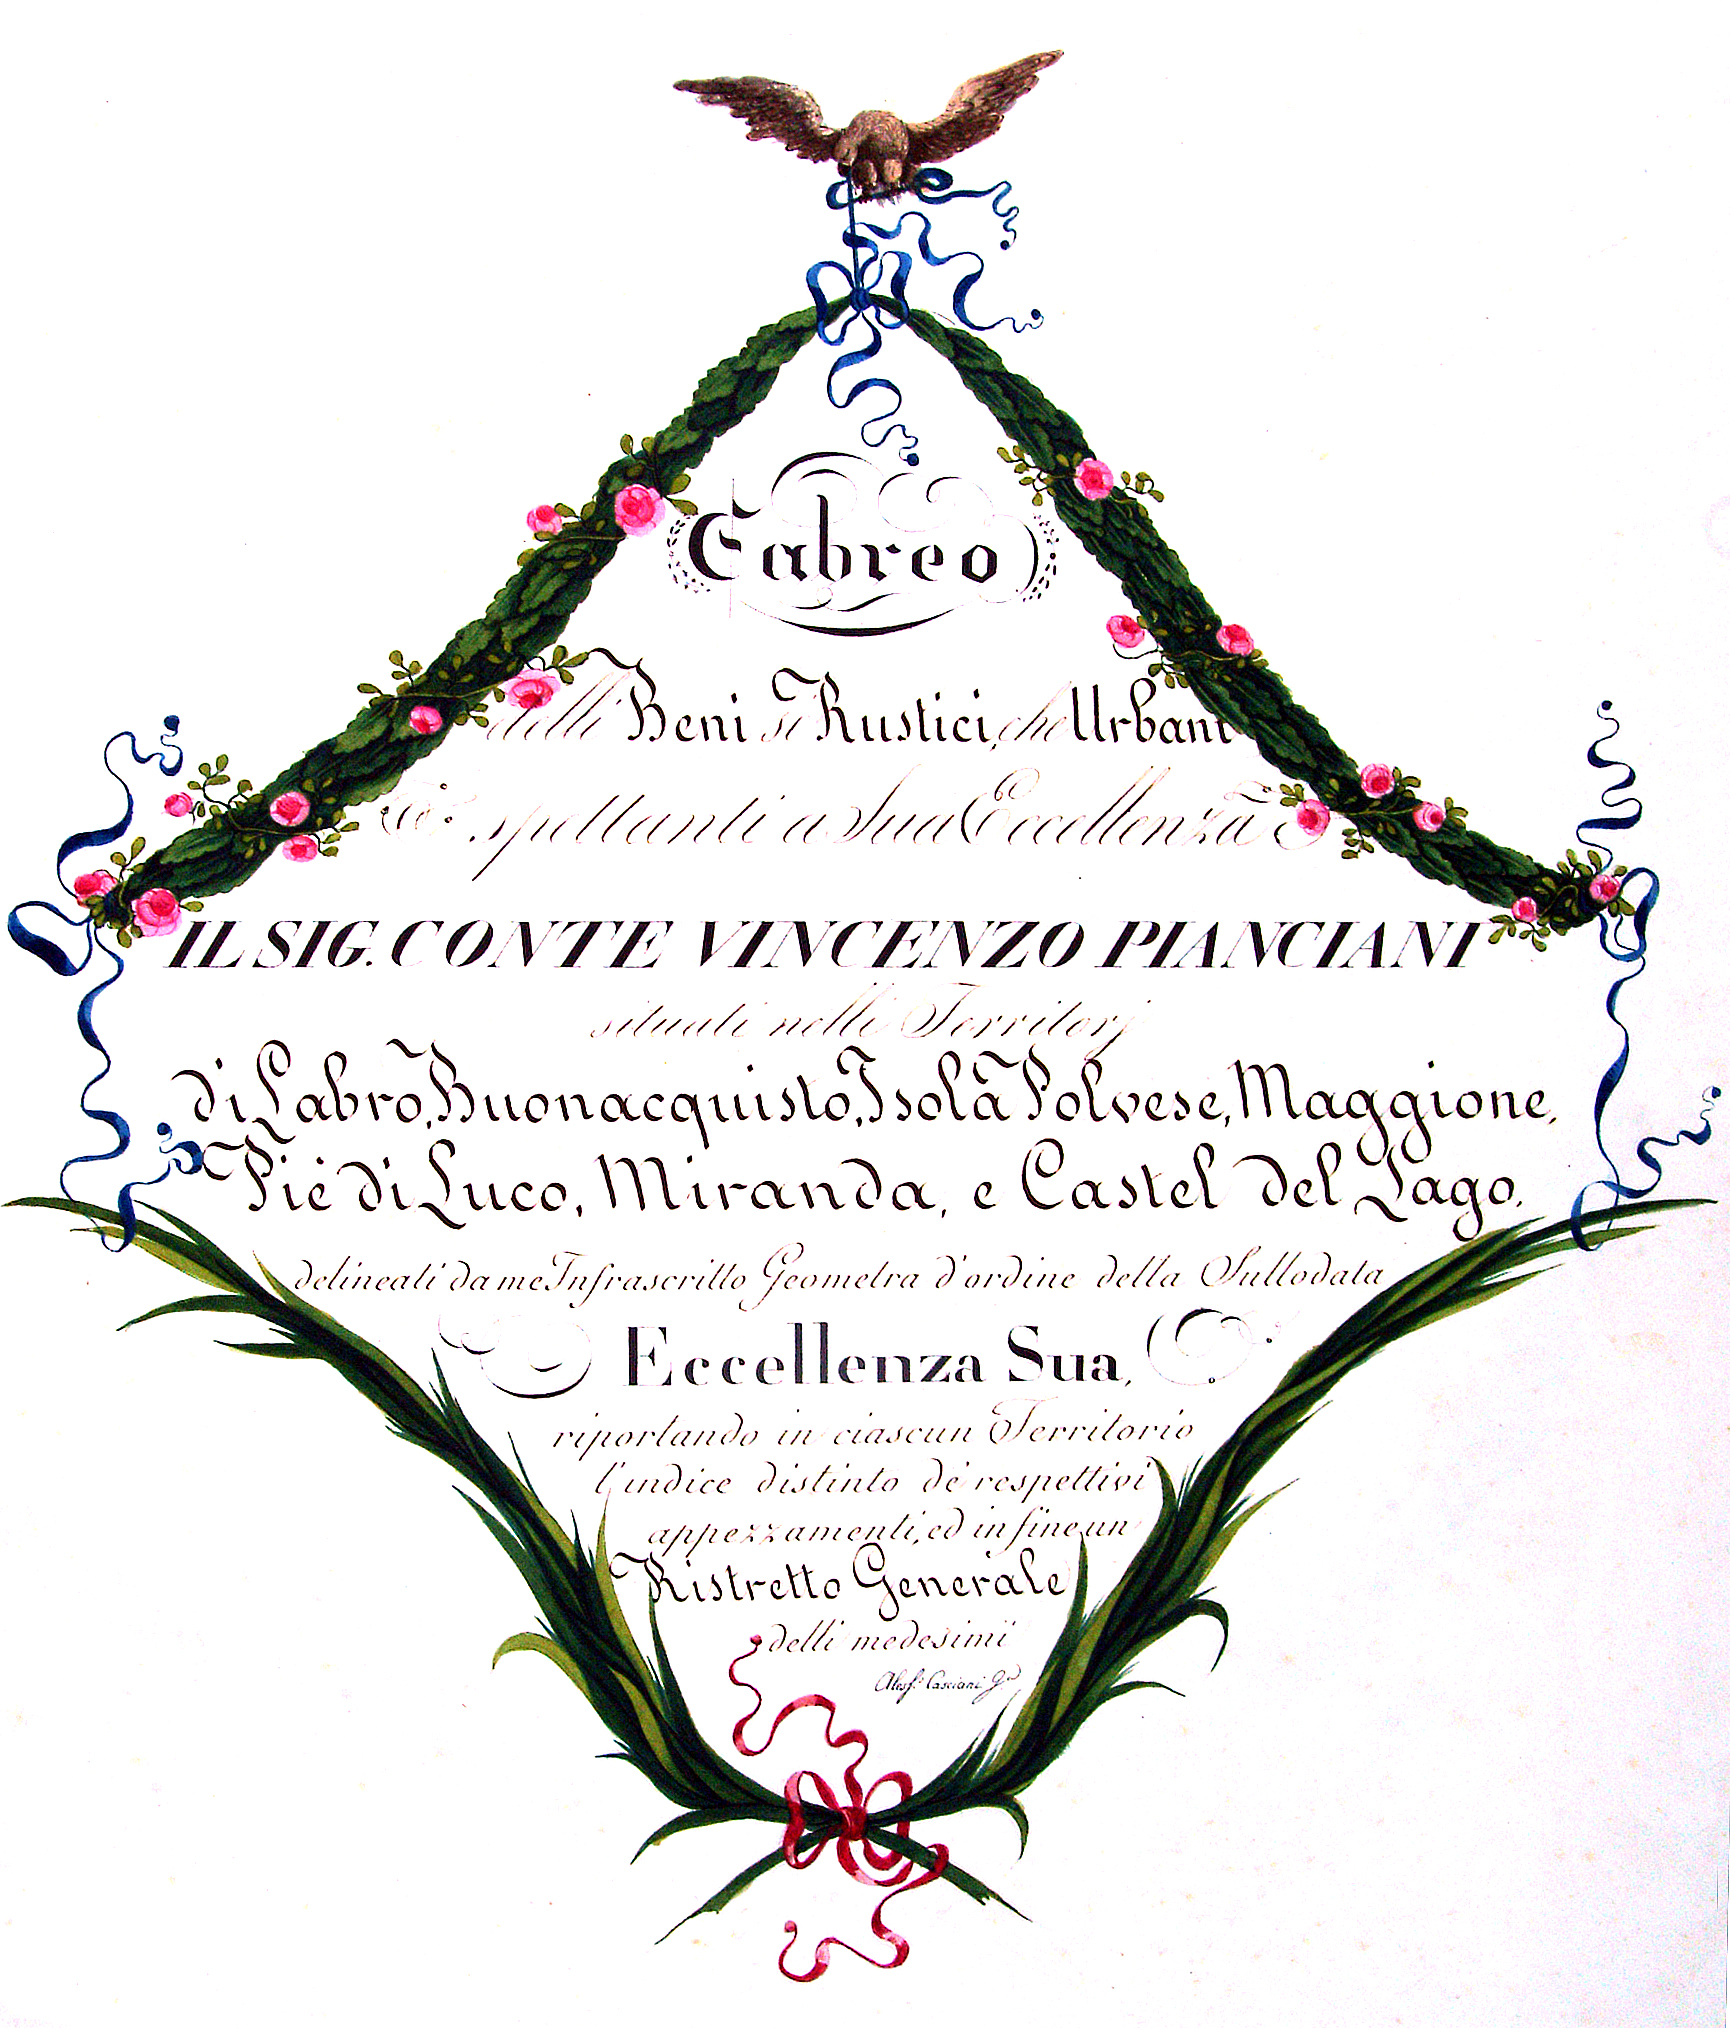 Cabreo
delli Beni sì Rustici, che Urbani
spettanti a Sua Eccellenza
IL SIG. CONTE VINCENZO PIANCIANI
situati nelli Territorj
di Labro, Buonacquisto, Isola Polvese, Maggione,
Piè di Luco, Miranda, e Castel del Lago.
delineati da me Infrascritto Geometra d'ordine della Sullodata
Eccellenza Sua,
riportando in ciascun Territorio
l'indice distinto de' respettivi
appezzamenti, ed in fine un
Ristretto Generale
delli medesimi
Casciani